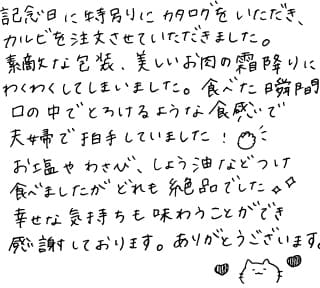 記念日に特別にカタログをいただき、
カルビを注文させていただきました。
素敵な包装、美しいお肉の霜降りに
わくわくしてしまいました。食べた瞬間
口の中でとろけるような食感で
夫婦で拍手していました!
お塩やわさび、しょう油などつけ
食べましたがどれも絶品でした
幸せな気持ちも味わうことができ
感謝しております。ありがとうございます。